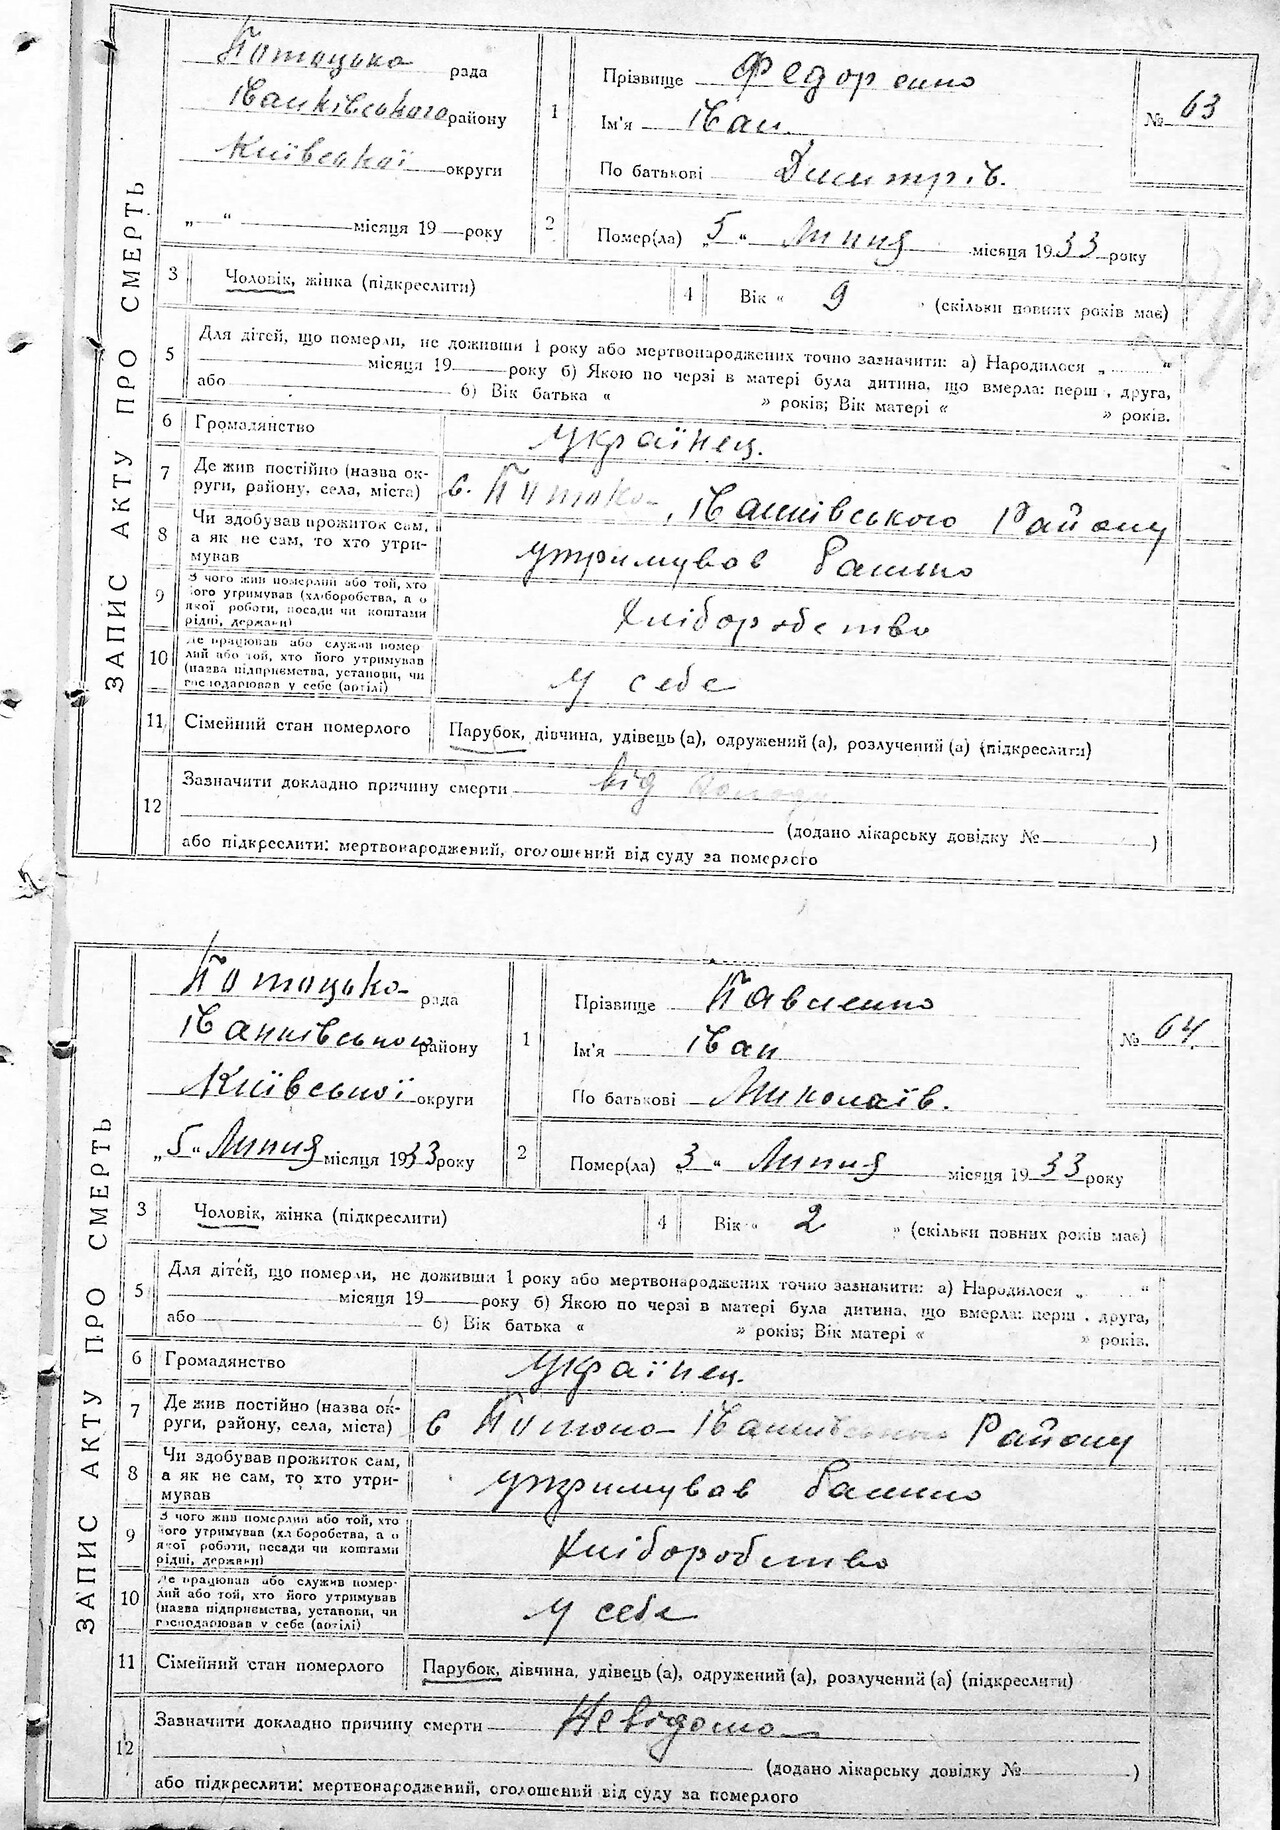 ЗАПИС АКТУ ПРО СМЕРТЬ
Потоцька рада
Іванківського району
Київської округи
„ “ місяця 19 року
1 Прізвище Федоренко
Ім'я Іван
По батькові Дмитрів.
№ 63
2 Помер(ла) „5“ Липня місяця 1933 року
3 Чоловік, жінка (підкреслити)
4 Вік « 9 » (скільки повних років має)
5 Для дітей, що померли, не доживши 1 року або мертвонароджених точно зазначити: а) Народилося „ “
місяця 19 року б) Якою по черзі в матері була дитина, що вмерла: перш , друга,
або 6) Вік батька « » років; Вік матері « » років.
6 Громадянство українец.
7 Де жив постійно (назва ок-
руги, району, села, міста) с. Потоки, Іванківського Району
8 Чи здобував прожиток сам,
а як не сам, то хто утри-
мував утримував батько
9 З чого жив померлий або той, хто
його утримував (хліборобства, а о
якої роботи, посади чи коштами
рідні, держави) хліборобство
10 Де працював або служив помер
лий або той, хто його утримував
(назва підприємства, установи, чи
господарював у себе (артілі) у себе
11 Сімейний стан померлого Парубок, дівчина, удівець (а), одружений (а), розлучений (а) (підкреслити)
12 Зазначити докладно причину смерти від голоду
(додано лікарську довідку № )
або підкреслити: мертвонароджений, оголошений від суду за померлого
ЗАПИС АКТУ ПРО СМЕРТЬ
Потоцька рада
Іванківського району
Київської округи
„5“ Липня місяця 1933 року
1 Прізвище Павленко
Ім'я Іван
По батькові Миколаїв.
№ 64
2 Помер(ла) 3 “ Липня місяця 1933 року
3 Чоловік, жінка (підкреслити)
4 Вік « 2 » (скільки повних років має)
5 Для дітей, що померли, не доживши 1 року або мертвонароджених точно зазначити: а) Народилося „ “
місяця 19 року б) Якою по черзі в матері була дитина, що вмерла: перш , друга,
або 6) Вік батька « » років; Вік матері « » років.
6 Громадянство українец.
7 Де жив постійно (назва ок-
руги, району, села, міста) с Потоки Іванківського Району
8 Чи здобував прожиток сам,
а як не сам, то хто утри-
мував утримував батько
9 З чого жив померлий або той, хто
його утримував (хл боробства, а о
якої роботи, посади чи коштами
рідні, держави) хліборобство
10 Де працював або служив помер-
лий або той, хто його утримував
(назва підприємства, установи, чи
господарював у себе (артілі) у себе
11 Сімейний стан померлого Парубок, дівчина, удівець (а), одружений (а), розлучений (а) (підкреслити)
12 Зазначити докладно причину смерти Невідомо
(додано лікарську довідку № )
або підкреслити: мертвонароджений, оголошений від суду за померлого